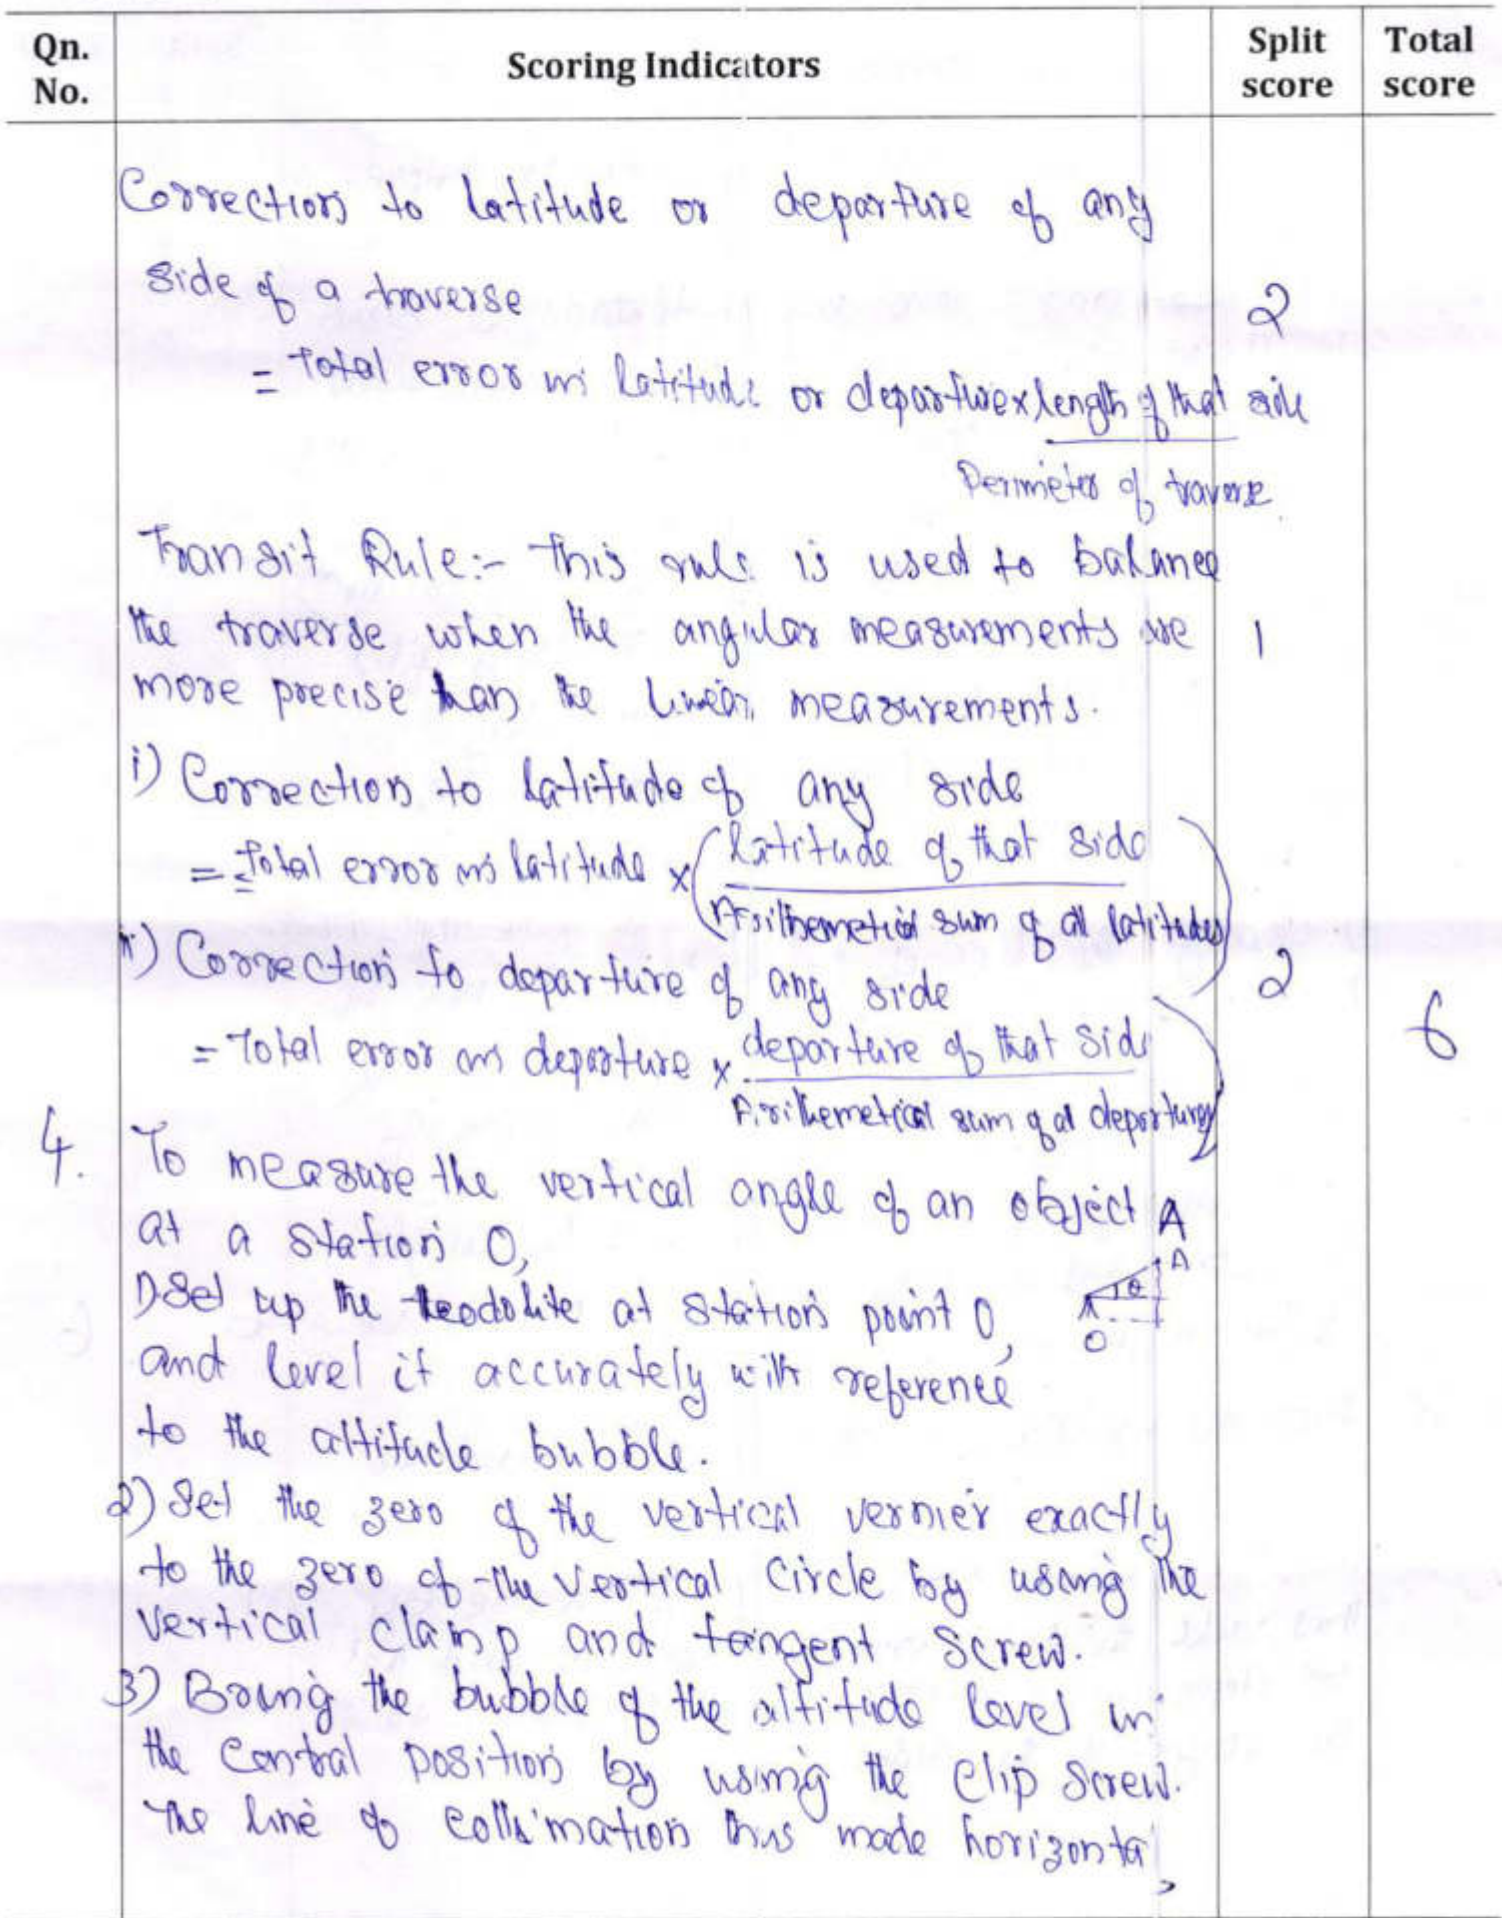 Qn. No. Scoring Indicators Split score Total score
Correction to latitude or departure of any
side of a traverse 2
= Total error in latitude or departure x length of that side
Perimeter of traverse
Transit Rule:- This rule is used to balance
the traverse when the angular measurements are 1
more precise than the linear measurements.
i) Correction to latitude of any side
= Total error in latitude x (latitude of that side
Arithemetical sum of all latitudes)
ii) Correction to departure of any side 2
= Total error in departure x departure of that side 6
Arithemetical sum of all departures
4. To measure the vertical angle of an object A
at a station O,
A
θ
O
1) Set up the theodolite at station point O,
and level it accurately with reference
to the altitude bubble.
2) Set the zero of the vertical vernier exactly
to the zero of the vertical circle by using the
vertical clamp and tangent screw.
3) Bring the bubble of the altitude level in
the central position by using the clip screw.
The line of collimation thus made horizontal,